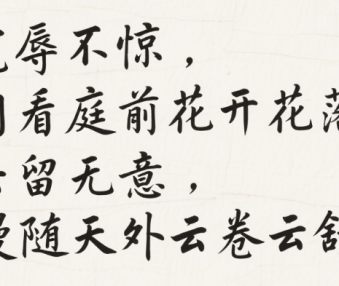 辱不惊，
看庭前花开花落
留无意，
随天外云卷云舒